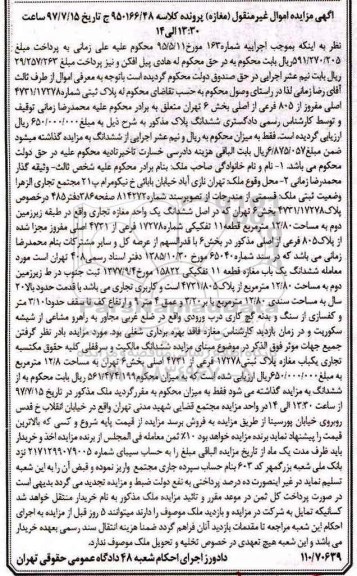 آگهی مزایده اموال غیرمنقول (مغازه) پرونده کلاسه ۹۵۰۱۶۶/۴۸ ج تاریخ ۹۷/۷/۱۵ ساعت
۱۳:۳۰ الی ۱۴
نظر به اینکه بموجب اجراییه شماره ۱۶۳ مورخ ۹۵/۵/۱۱ محکوم علیه علی زمانی به پرداخت مبلغ
۵۹۱/۲۷۰/۲۰۵ ریال بابت محکوم به در حق محکوم له هادی پیل افکن و نیز پرداخت مبلغ ۲۹/۲۵۷/۲۶۳
ریال بابت نیم عشر اجرایی در حق صندوق دولت محکوم گردیده است باتوجه به معرفی اموال از طرف ثالث
آقای رضا زمانی لذا در راستای وصول محکوم به حسب تقاضای محکوم له پلاک ثبتی شماره ۴۷۳۱/۱۷۲۷۸
اصلی مفروز از ۸۰۵ فرعی از اصلی بخش ۶ تهران متعلق به برادر محکوم علیه محمدرضا زمانی توقیف
و توسط کارشناس رسمی دادگستری ششدانگ پلاک مذکور به شرح ذیل به مبلغ ۶۵۰/۰۰۰/۰۰۰ ریال
ارزیابی گردیده است. فقط به میزان محکوم به ریال و نیم عشر اجرایی از ششدانگ به مزایده گذاشته میشود
ضمن مبلغ ۶/۸۲۵/۰۵۷ ریال بابت الباقی هزینه دادرسی خسارت تاخیرتادیه محکوم علیه در حق دولت
محکوم می باشد. ۱- نام و نام خانوادگی صاحب ملک: بنام برادر محکوم علیه شخص ثالث- وثیقه گذار
محمدرضا زمانی ۲- محل وقوع ملک: تهران نازی آباد خیابان بابائی خ نیکومرام پ ۲۱ مجتمع تجاری الزهرا
وضعیت ثبتی ملک: شرحی از مندرجات از تصویرسند شماره ۸۱۴۲۷۲ صفحه ۳۸۶ دفتر ۴۸۵ درخصوص
پلاک ۴۷۳۱/۱۷۲۷۸ بخش ۶ تهران که در اصل ششدانگ یک واحد مغازه تجاری واقع در طبقه زیرزمین
دوم به مساحت ۱۲/۸۰ مترمربع قطعه ۱۱ تفکیکی شماره ۱۷۲۷۸ فرعی از ۴۷۳۱ اصلی مفروز مجزا شده
از پلاک ۸۰۵ فرعی از اصلی مذکور در بخش ۶ با قدرالسهم از عرصه کل و سایر مشترکات بنام محمدرضا
زمانی می باشد که در سند شماره ۶۵۰۴۰ مورخ ۱۳۸۵/۱۰/۳۰ دفتر اسناد رسمی ۴۰۸ تهران است مورد
معامله ششدانگ یک باب مغازه قطعه ۱۱ تفکیکی شماره ۱۵۸۲۲ مورخ ۱۳۷۷/۹/۴ ثبت جنوب در ط زیرزمین
دوم به مساحت ۱۲/۸۰ مترمربع از پلاک ۴۷۳۱/۸۰۵ است و کاربری تجاری می باشد با قدمت حدود بالای ۲۰
سال به مساحت سندی ۱۲/۸۰ مترمربع با بر ۳/۲۰ و عمق ۴ متر و ارتفاع کف با سقف حدود ۳/۱۰ متر
و کفسازی از سنگ و بدنه گچ کاری درب ورودی واقع در ضلع غربی مجاور به راهرو مشاعی از شیشه
سکوریت و در زمان بازدید کارشناس مغازه فاقد بهره برداری شغلی بود. مورد مزایده با در نظر گرفتن
جمیع جهات موثر فوق الذکر در موضوع مبنای مزایده ششدانگ مالکیت و سرقفلی کلیه حقوق مکتسبه
تجاری یکباب مغازه پلاک ثبتی ۱۷۲۷۸ فرعی از ۴۷۳۱ اصلی بخش ۶ تهران به مساحت ۱۲/۸ مترمربع
به مبلغ ۶۵۰/۰۰۰/۰۰۰ ریال ارزیابی شده است که به میزان محکوم به ۵۶۱/۴۷۴/۱۹۹ ریال بابت محکوم به از
ششدانگ به مزایده گذاشته می شود فقط به میزان محکوم به مقررگردید ملک مذکور در تاریخ ۹۷/۷/۱۵
از ساعت ۱۳:۳۰ الی ۱۴ در واحد مزایده مجتمع قضایی شهید مدنی تهران واقع در خیابان انقلاب خ قدس
روبروی خیابان پورسینا از طریق مزایده به فروش برسد مزایده از قیمت پایه شروع و کسی که بالاترین
قیمت را پیشنهاد نماید برنده مزایده خواهد بود ۱۰٪ ثمن معامله فی المجلس از برنده مزایده اخذ و خریدار
باید ظرف مدت یک ماه از تاریخ مزایده الباقی مبلغ را به حساب سیبای شماره ۲۱۷۱۲۹۹۰۷۹۰۰۵ نزد
بانک ملی شعبه بزرگمهر کد ۶۰۳ بنام حساب سپرده جاری مجتمع واریز نموده و فیش آن را به این شعبه
تسلیم نماید در غیر اینصورت ده درصد پرداختی به نفع دولت ضبط و مزایده تجدید می گردد بدیهی است
در صورت پرداخت کل ثمن در موعد مقرر و تائید مزایده ملک مذکور به نام خریدار منتقل خواهد شد
کسانیکه تمایل به شرکت در مزایده و بازدید ملک موصوف را دارند میتوانند ۵ روز قبل از مزایده به اجرای
احکام این شعبه مراجعه تا مقدمات بازدید آنان فراهم گردد ضمنا هزینه انتقال سند رسمی بعهده خریدار
می باشد و این شعبه هیچ تعهدی در خصوص تخلیه و تحویل ملک موصوف ندارد.
۱۱۰/۷۰۶۳۹ دادورز اجرای احکام شعبه ۴۸ دادگاه عمومی حقوقی تهران